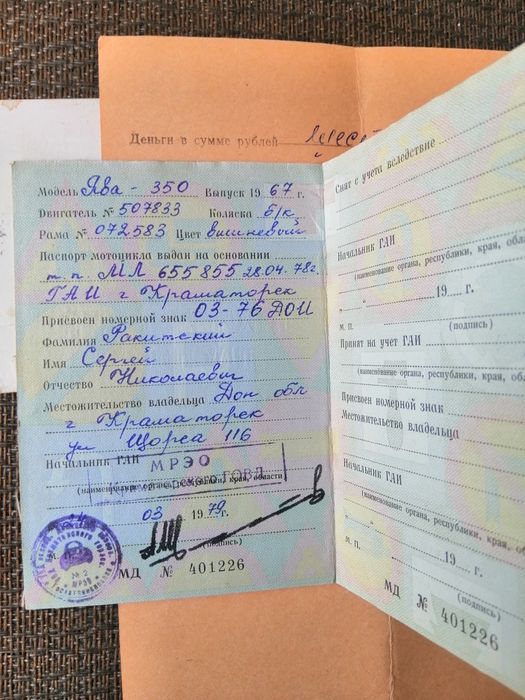 Деньги в сумме рублей
Модель Ява - 350 Выпуск 1967 г.
Двигатель № 507833 Коляска б/к
Рама № 072583 Цвет вишневый
Паспорт мотоцикла выдан на основании
т.п. МЛ 655855 28.04.78г
ГАИ г Краматорск
Присвоен номерной знак 03-76 ДОИ
Фамилия Ракитский
Имя Сергей
Отчество Николаевич
Местожительство владельца Дон обл
г Краматорск
ул Щорса 116
Начальник ГАИ
МРЭО
(наименование органа, республики, края, области)
ГОВД
03 1979 г.
(подпись)
МД № 401226
№ 2
МРЭО
Снят с учета вследствие
Начальник ГАИ
(наименование органа, республики, края, обла
" " 19 г.
м. п. (подпись)
Принят на учет ГАИ
(наименование органа, республики, края, об
Присвоен номерной знак
Местожительство владельца
Начальник ГАИ
(наименование органа, республики, кра
" " 19 г.
М. П.
(подпись)
МД № 401226